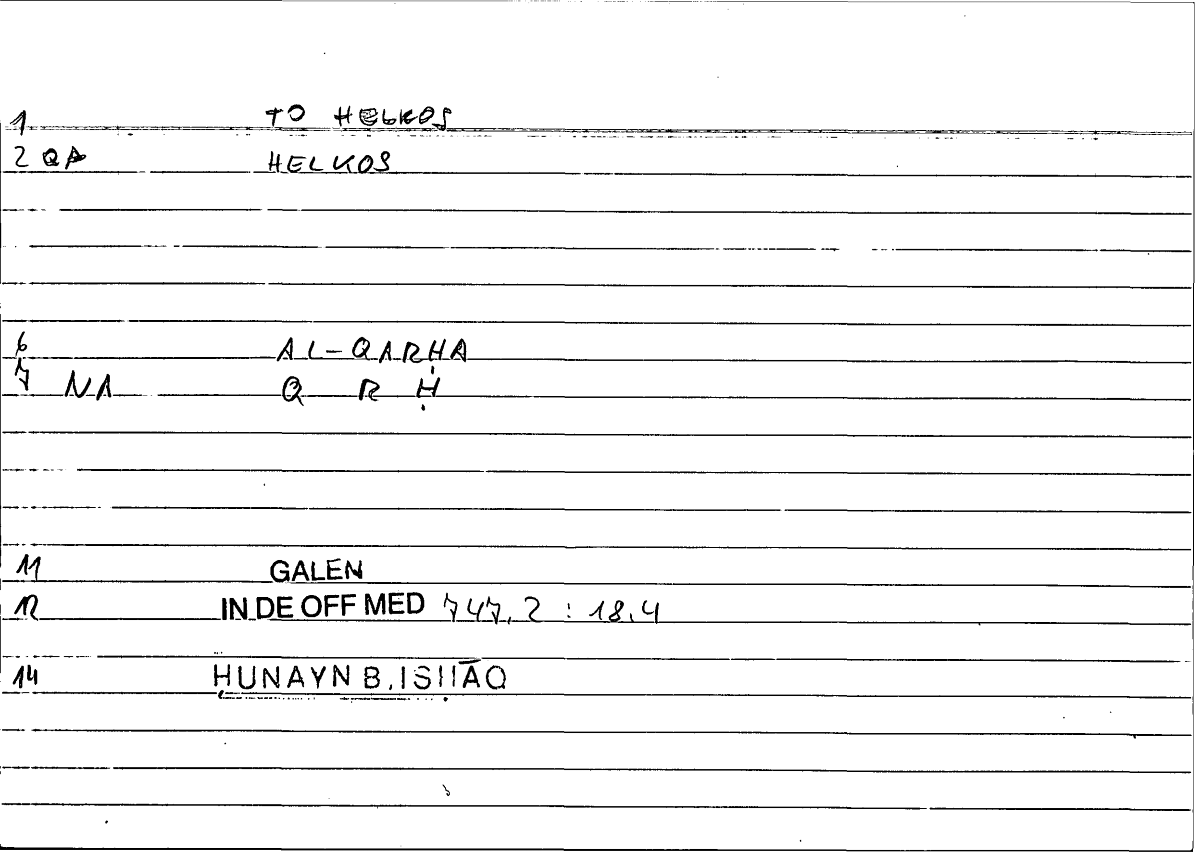 1 TO HELKOS
2 QA HELKOS
6 AL-QARḤA
7 NA Q R Ḥ
11 GALEN
12 IN DE OFF MED 747,2 : 18,4
14 ḤUNAYN B. ISḤĀQ